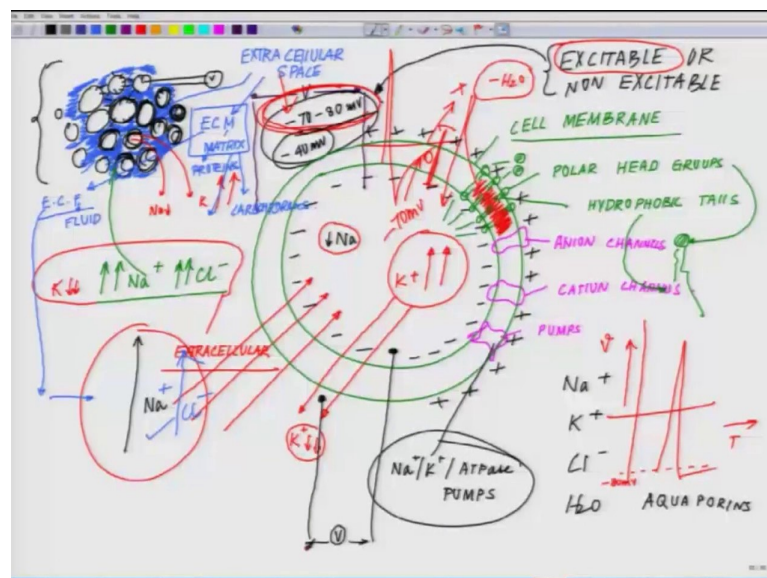 EXTRACELLULAR
SPACE
ECM
MATRIX
PROTEINS
CARBOHYDRATES
K
Na↓
E.C.F
FLUID
K↓↓ ↑↑Na+ ↑↑Cl-
EXTRACELLULAR
Na+ Cl-
V
-70-80 mV
-40 mV
-H2O
EXCITABLE OR
NON EXCITABLE
CELL MEMBRANE
POLAR HEAD GROUPS
HYDROPHOBIC TAILS
ANION CHANNELS
CATION CHANNELS
PUMPS
-70mV
↓Na
K+ ↑↑
K+↓↓
V
Na+/K+/ATPase
PUMPS
Na+
K+
Cl-
H2O AQUAPORINS
V
T
-80mV